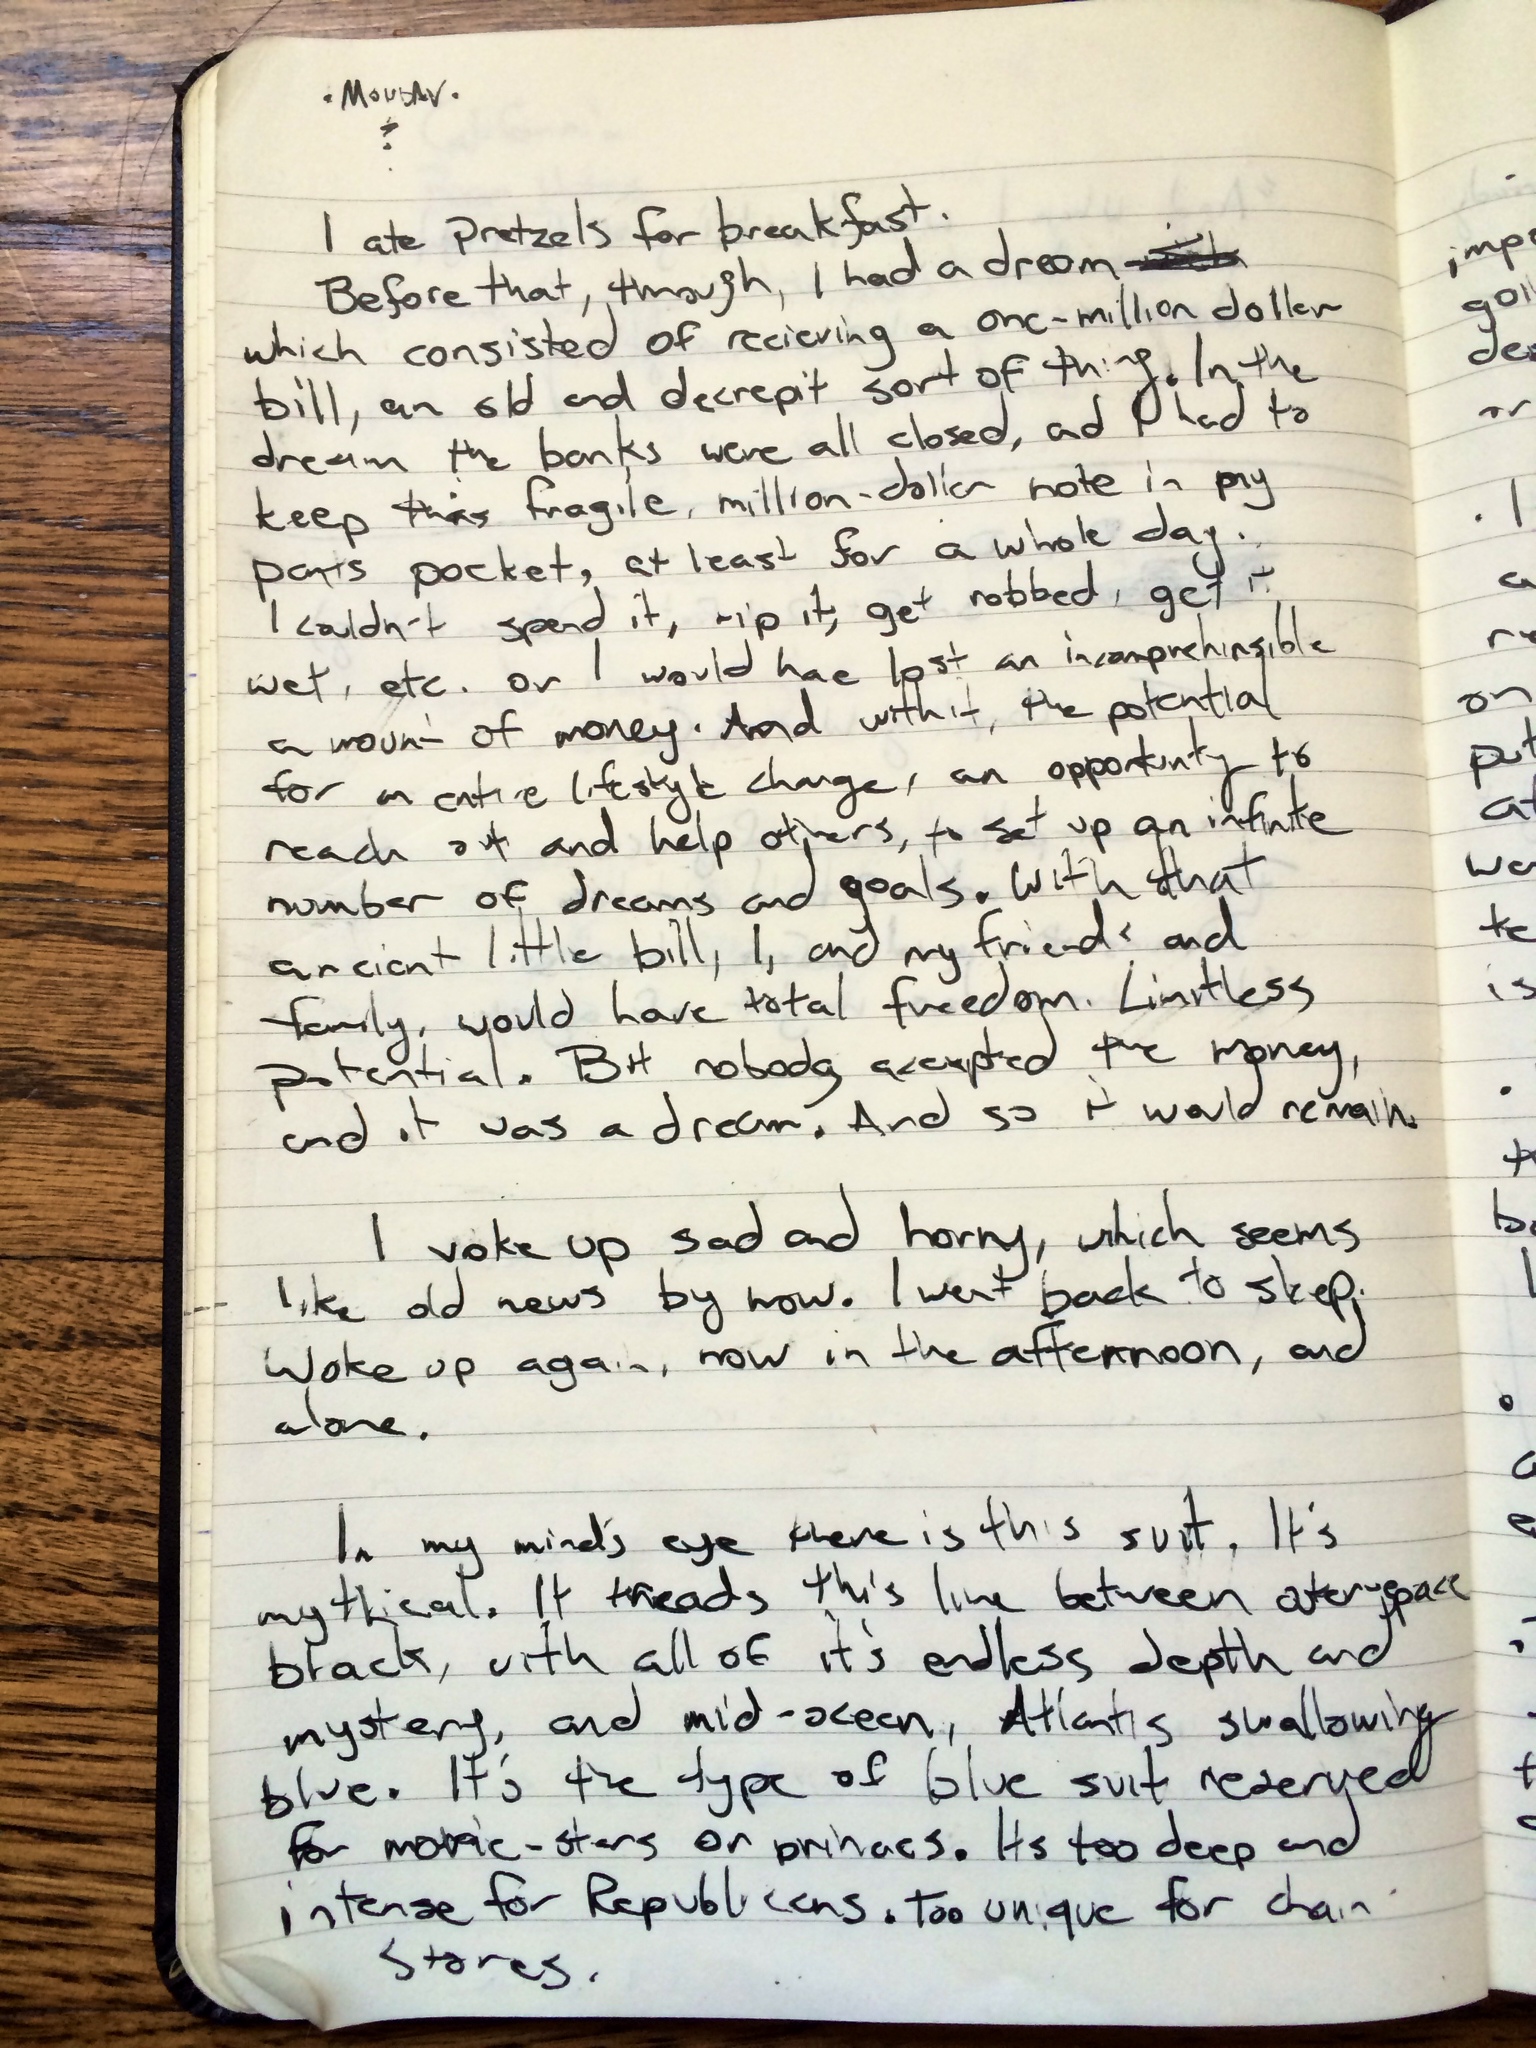 . MONDAY.
I ate pretzels for breakfast.
Before that, though, I had a dream
which consisted of recieving a one-million doller
bill, an old and decrepit sort of thing. In the
dream the banks were all closed, ad I had to
keep this fragile, million-doller note in my
pants pocket, at least for a whole day.
I couldn't spend it, rip it, get robbed, get it
wet, etc. or I would hae lost an incomprehinsible
amount of money. And with it, the potential
for an entire lifestyle change, an opportunity to
reach out and help others, to set up an infinite
number of dreams and goals. With that
ancient little bill, I, and my friends and
family, would have total freedom. Limitless
potential. But nobody accepted the money,
and it was a dream. And so it would remain.
I woke up sad and horny, which seems
like old news by now. I went back to sleep.
Woke up again, now in the afternoon, and
alone.
In my mind's eye there is this suit. It's
mythical. It treads this line between outerspace
black, with all of it's endless depth and
mystery, and mid-ocean, Atlantis swallowing
blue. It's the type of blue suit reserved
for movie-stars or princes. Its too deep and
intense for Republicans. Too unique for chain
stores.